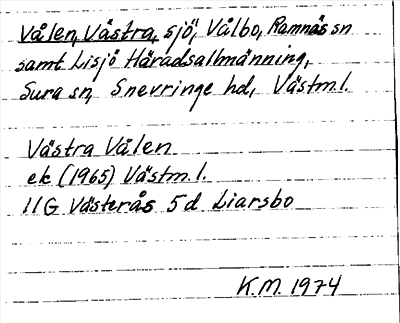 Vålen, Västra, sjö, Vålbo, Ramnäs sn
samt Lisjö Häradsallmänning,
Sura sn, Snevringe hd, Västm.l.
Västra Vålen
ek (1965) Västm.l.
11G Västerås 5d Liarsbo
K.M. 1974